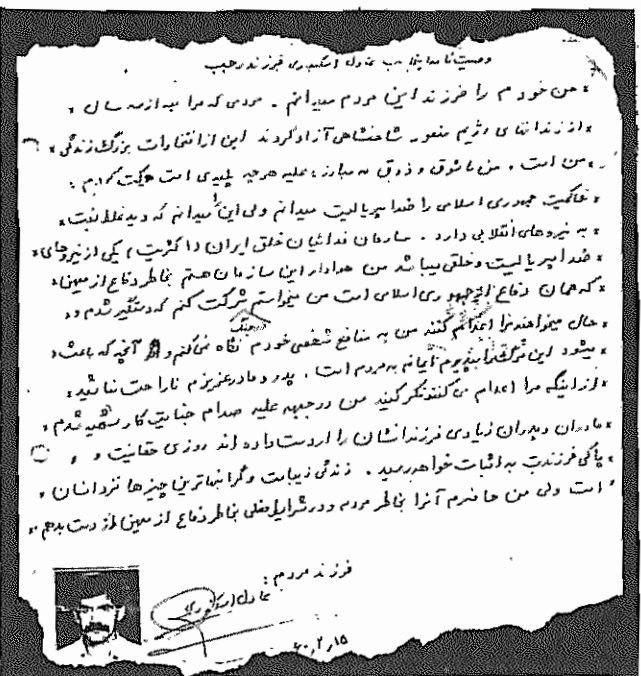 وصیت نامه اینجانب عادل اسکندری فرزند حبیب
من خودم را فرزند این مردم میدانم . مردمی که مرا بعد از سه سال
از زندانهای رژیم منفور شاهنشاهی آزاد کردند این از افتخارات بزرگ زندگی
من است . من با شوق و ذوق به مبارزه علیه هرچه پلیدی است حرکت کرده‌ام .
حاکمیت جمهوری اسلامی را ضد امپریالیست میدانم ولی این را میدانم که دید غلط نسبت
به نیروهای انقلابی دارد . سازمان فدائیان خلق ایران (اکثریت) یکی از نیروهای
ضد امپریالیست و خلقی میباشد من هوادار این سازمان هستم بخاطر دفاع از میهن
که همان دفاع از جمهوری اسلامی است من میخواستم شرکت کنم که دستگیر شدم و
حال میخواهند مرا اعدام کنند من به منافع شخصی خودم در جنگ نگاه نمی‌کنم و آنچه که باعث
میشود این مرگ را بپذیرم ایمانم به مردم است . پدر و مادر عزیزم ناراحت نباشید
از اینکه مرا اعدام می‌کنند فکر کنید من در جبهه علیه صدام جنایتکار شهید شدم
مادران و پدران زیادی فرزندانشان را از دست داده اند روزی حقانیت و
پاکی فرزندت به اثبات خواهد رسید . زندگی زیباست و گرانبهاترین چیزها نزد انسان
است ولی من حاضرم آنرا بخاطر مردم و در شرایط فعلی بخاطر دفاع از میهن از دست بدهم
فرزند مردم :
عادل اسکندری
۶۰٫۲٫۱۵